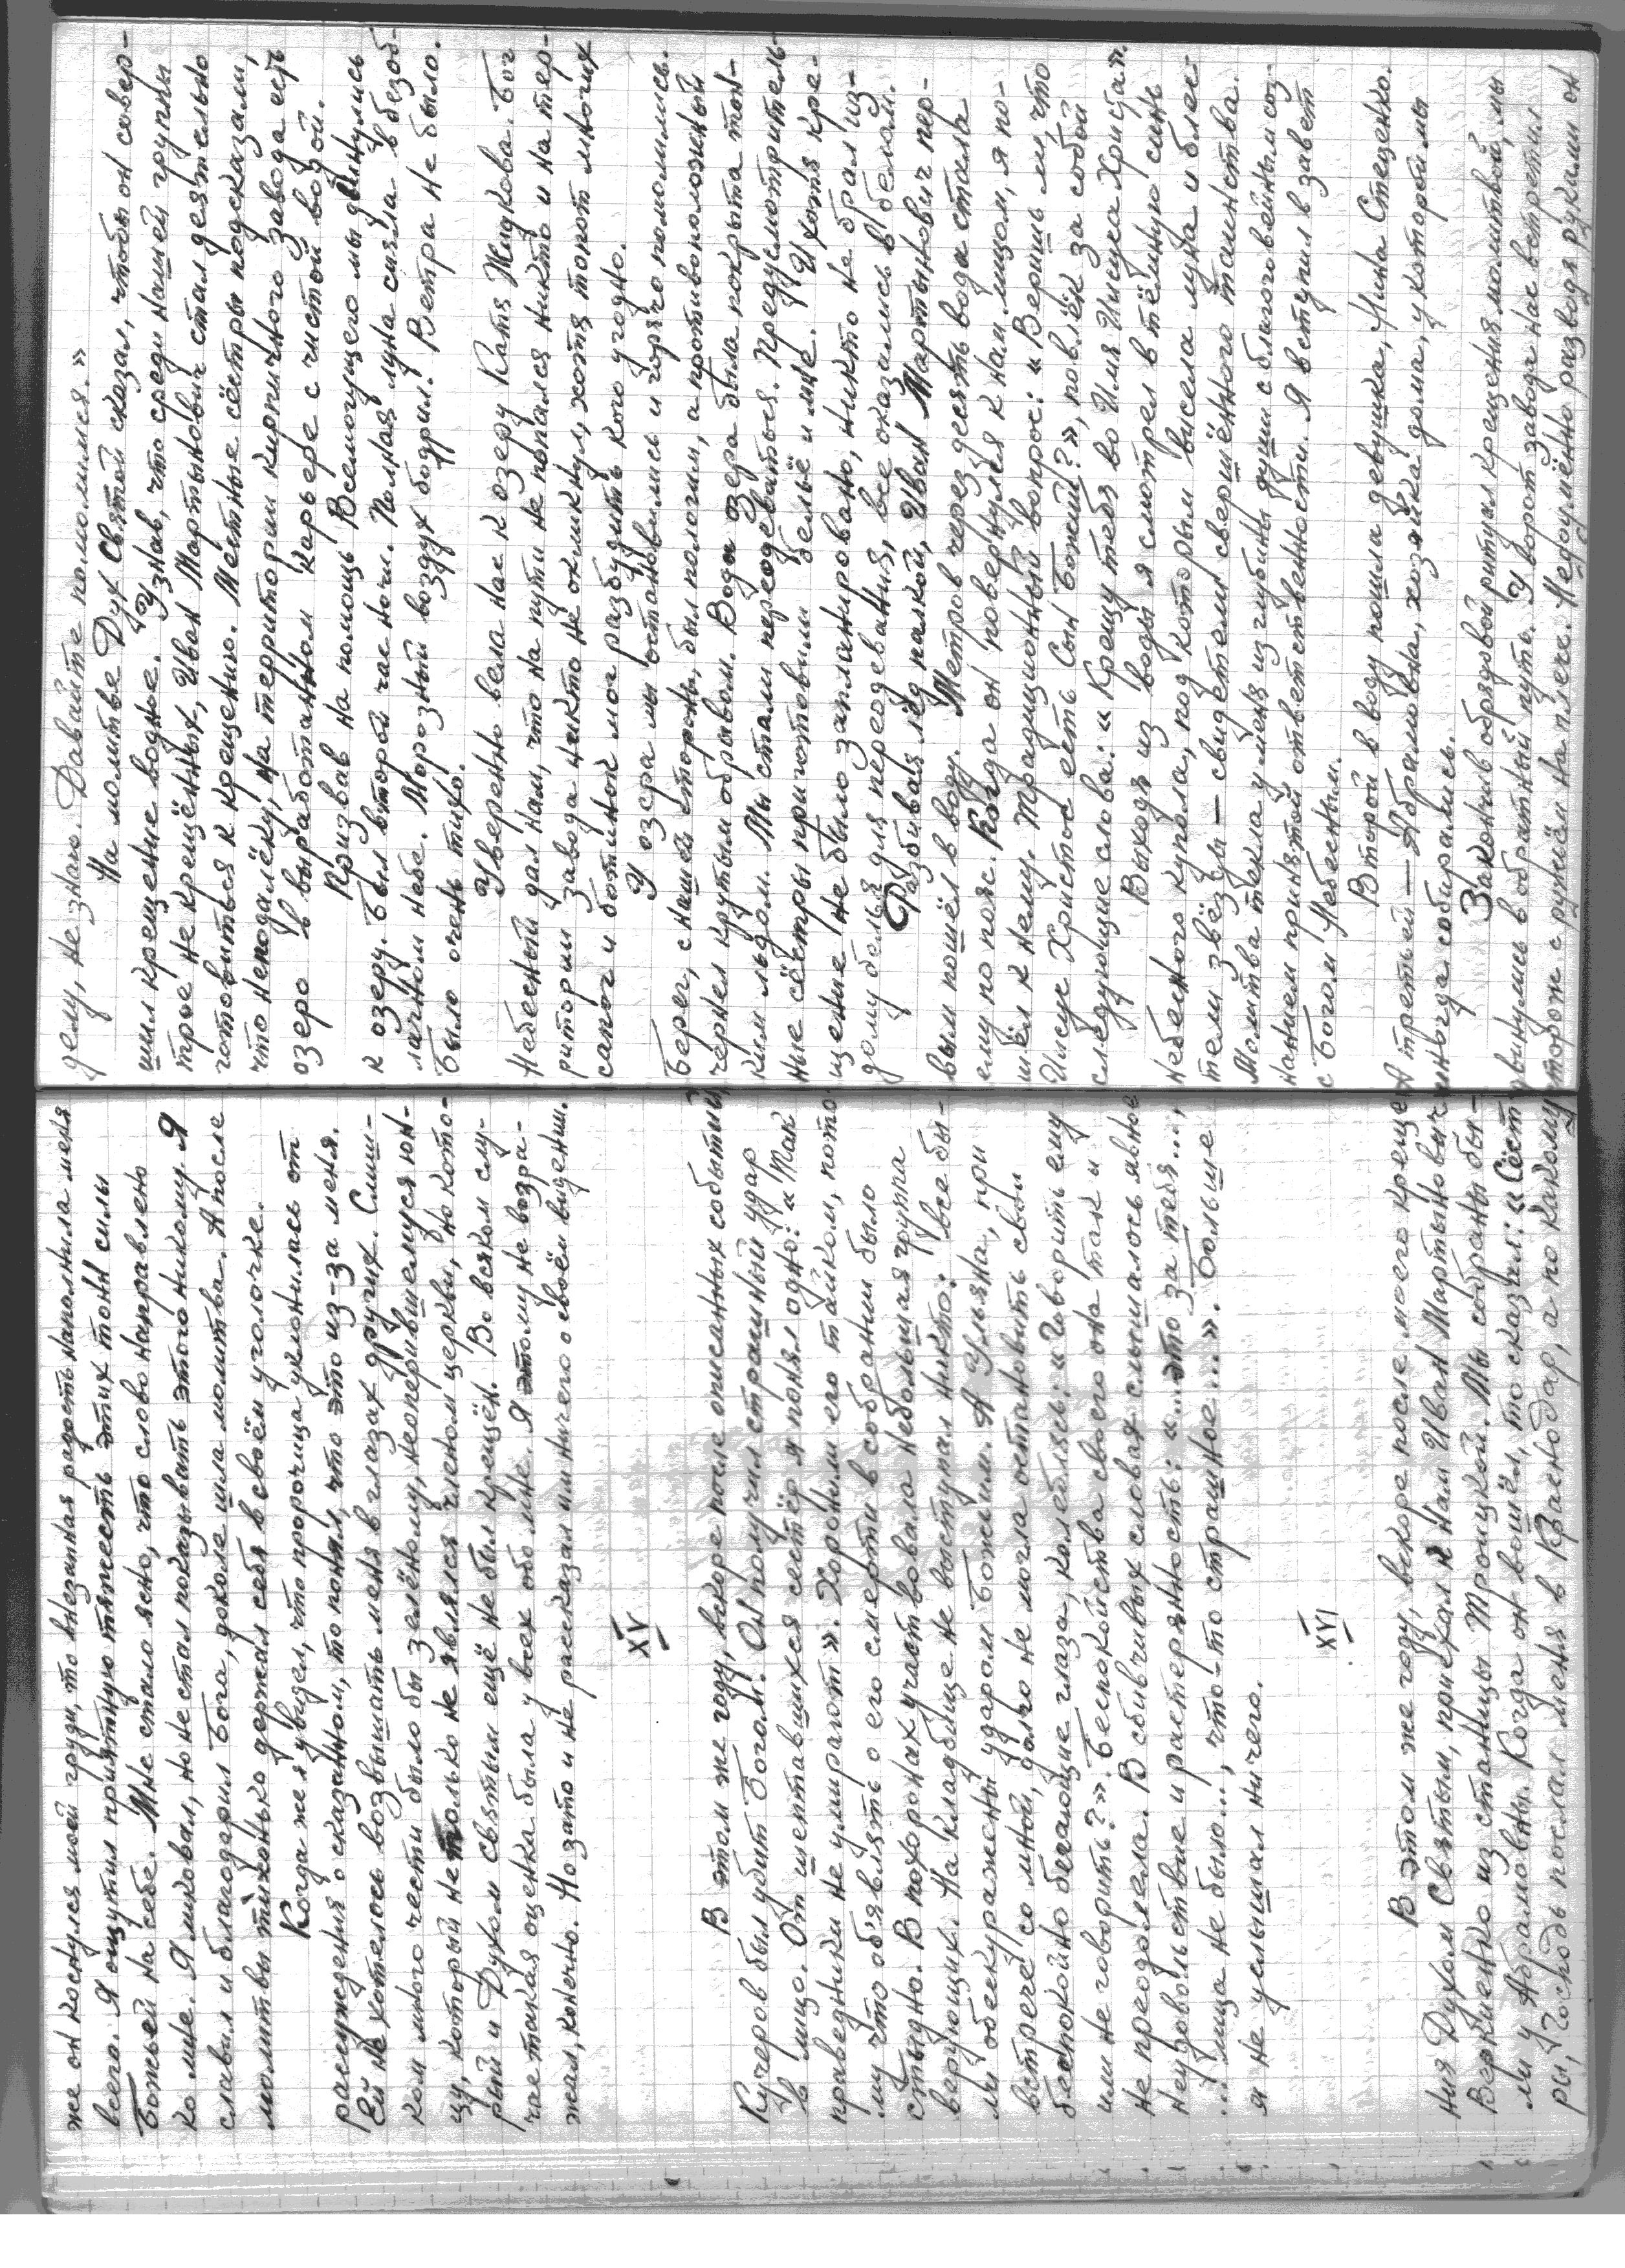 же он коснулся моей груди, то внезапная радость наполнила меня
всего. Я ощутил приятную тяжесть этих тонн силы
Божьей на себе. Мне стало ясно, что слово направлено
ко мне. Я ликовал, но не стал показывать этого никому. Я
славил и благодарил Бога, доколе шла молитва. А после
молитвы тихонько держал себя в своём уголочке.
Когда же я увидел, что пророчица уклонилась от
рассуждения о сказанном, то понял, что это из-за меня.
Ей не хотелось возвышать меня в глазах других. Слиш-
ком много чести было бы зелёному, неоперившемуся юн-
цу, который не только не являлся членом церкви, но кото-
рый и Духом святым ещё не был крещён. Во всяком слу-
чае такая оценка была у всех обо мне. Я этому не возра-
жал, конечно. Но зато и не рассказал им ничего о своём видении.
XV
В этом же году, вскоре после описанных событий
Кучеров был убит Богом. Он получил страшный удар
в лицо. От шептавшихся сестёр я понял одно: "Так
праведники не умирают". Хоронили его тайком, пото-
му что об'являть о его смерти в собрании было
стыдно. В похоронах участвовала небольшая группа
верующих. На кладбище не выступал никто: все бы-
ли обескуражены ударом Божьим. А Ульяна, при
встрече со мной, долго не могла остановить свои
беспокойно бегающие глаза, колеблясь: "Говорить ему
или не говорить?". Беспокойства своего она так и
не преодолела. В сбивчивых словах слышалось явное
неудовольствие и растерянность: "...это за тебя...,
...лица не было..., что-то страшное...". Больше
я не услышал ничего.
XVI
В этом же году, вскоре после моего креще-
ния Духом Святым, приехал к нам Иван Мартынович
Веркиенко из станицы Троицкой. Мы собраны бы-
ли у Абрамовны. Когда он вошёл, то сказал: "Сёст-
ры, Господь послал меня в Краснодар, а по какому
делу, не знаю. Давайте помолимся."
На молитве Дух Святой сказал, чтобы он совер-
шил крещение водное. Узнав, что среди нашей группы
трое не крещённых, Иван Мартынович стал деятельно
готовиться к крещению. Местные сёстры подсказали,
что неподалёку, на территории кирпичного завода есть
озеро в выработанном карьере с чистой водой.
Призвав на помощь Всемогущего мы двинулись
к озеру. Был второй час ночи. Полная луна сияла в безоб-
лачном небе. Морозный воздух бодрил. Ветра не было.
Было очень тихо.
Уверенно вела нас к озеру Катя Жидкова. Бог
Небесный дал нам, что на пути не попался никто и на тер-
ритории завода никто не окликнул, хотя топот многих
сапог и ботинок мог разбудить кого угодно.
У озера мы остановились и горячо помолились.
Берег, с нашей стороны, был пологим, а противоположный
чернел крутым обрывом. Вода озера была покрыта тон-
ким льдом. Мы стали переодеваться. Предусмотритель-
ные сёстры приготовили бельё и мне. И хотя кре-
щение не было запланировано, никто не брал из-
дому белья для переодевания, все оказались в белом.
Разбивая лёд палкой, Иван Мартынович пер-
вым пошёл в воду. Метров через десять вода стала
ему по пояс. Когда он повернулся к нам лицом, я по-
шёл к нему. Традиционный вопрос: "Веришь ли что
Иисус Христос есть Сын Божий?", повлёк за собой
следующие слова: "Крещу тебя во Имя Иисуса Христа".
Выходя из воды я смотрел в тёмную синь
небесного купола, под которым висела луна и блес-
тели звёзды — свидетели свершённого таинства.
Молитва текла у меня из глубины души с благоговейным соз-
нанием принятой ответственности. Я вступил в завет
с Богом Небесным.
Второй в воду пошла девушка, Нина Стеценко.
А третьей — Абрамовна, хозяйка дома, у которой мы
иногда собирались.
Закончив обрядовый ритуал крещения молитвой, мы
двинулись в обратный путь. У ворот завода нас встретил
сторож с ружьём на плече. Недоумённо разводя руками он